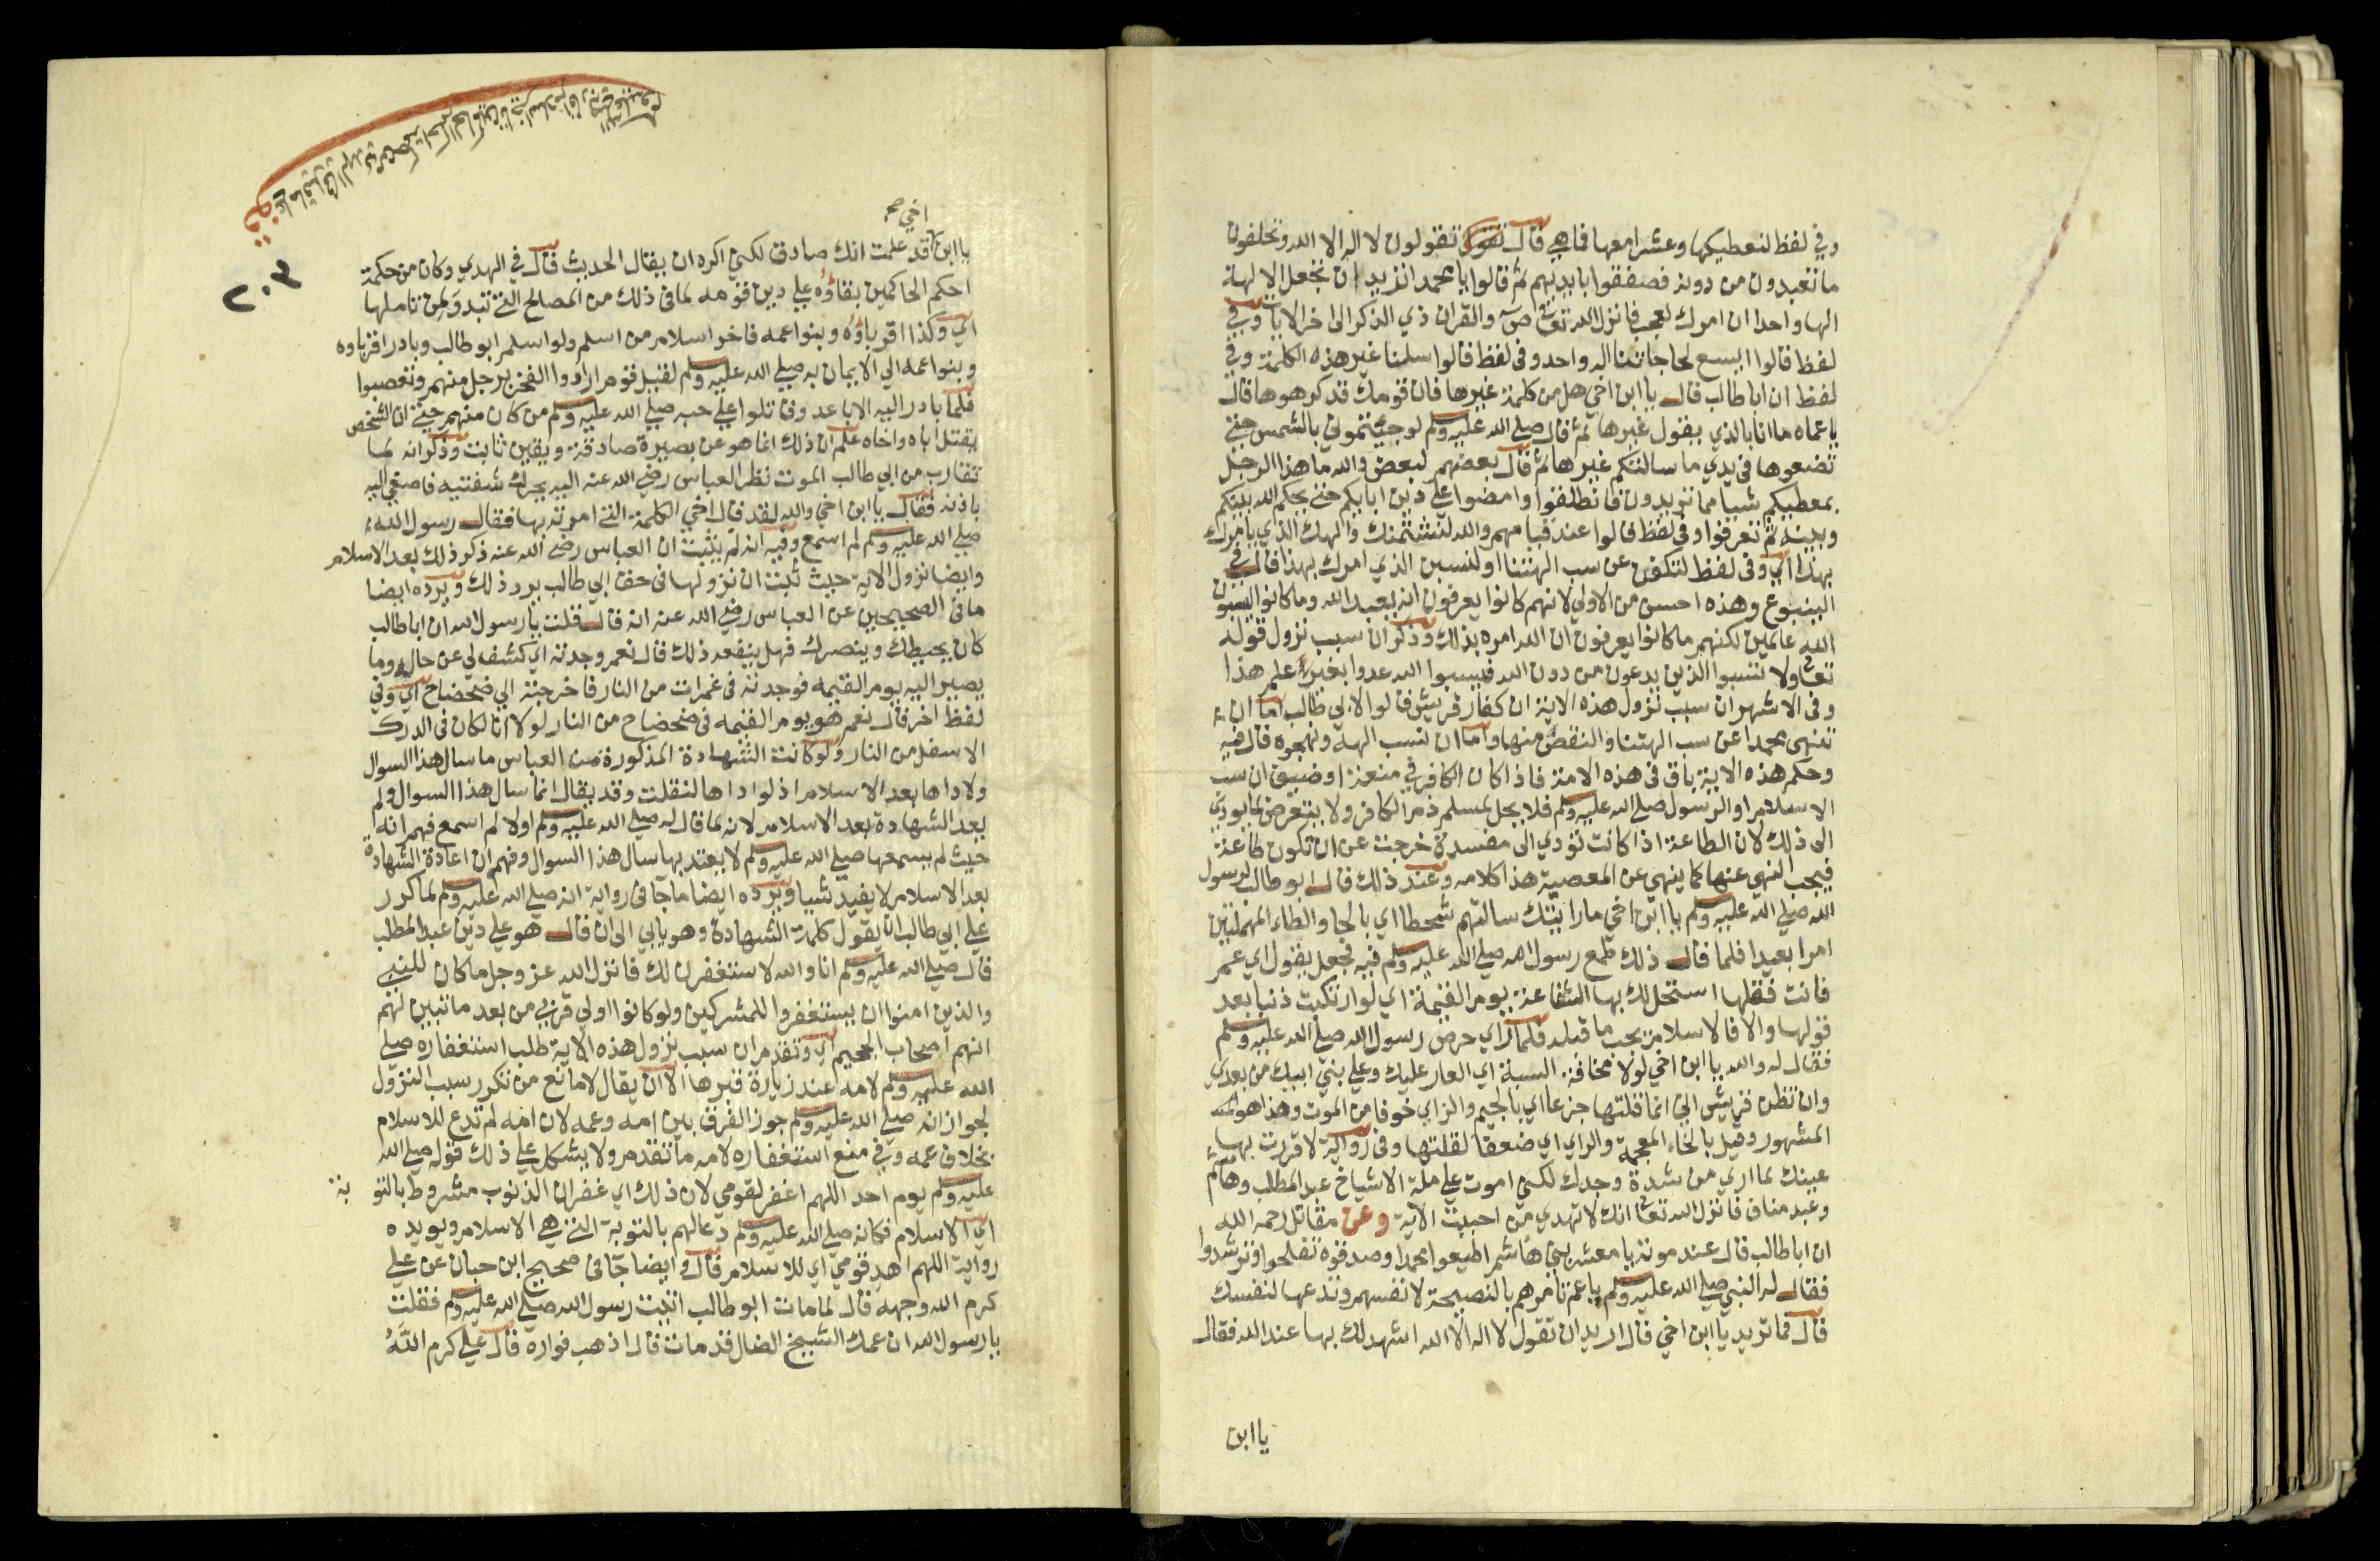 وفي لفظ لنعطيكها وعشرا معها فما هي قال تقولون لا اله الا الله وتخلعون
ما تعبدون من دونه فصفقوا بايديهم ثم قالوا يا محمد اتريد ان تجعل الالهة
الها واحدا ان امرك لعجب فانزل الله تعالى ص والقران ذي الذكر الى اخر الايات وفي
لفظ قالوا ايسع لحاجاتنا اله واحد وفي لفظ قالوا سلنا غير هذه الكلمة وفي
لفظ ان ابا طالب قال يا ابن اخي هل من كلمة غيرها فان قومك قد كرهوها قال
يا عماه ما انا بالذي يقول غيرها ثم قال صلى الله عليه وسلم لو جيتموني بالشمس حتى
تضعوها في يدي ما سالتكم غيرها ثم قال بعضهم لبعض والله ما هذا الرجل
بمعطيكم شيا مما تريدون فانطلقوا وامضوا على دين ابايكم حتى يحكم الله بينكم
وبينه ثم تفرقوا وفي لفظ قالوا عند قيامهم والله لنشتمنك والهك الذي يامرك
بهذا اي وفي لفظ لتكفن عن سب الهتنا او لنسبن الذي امرك بهذا قال في
الينبوع وهذه احسن من الاولى لانهم كانوا يعرفون انه يعبد الله وما كانوا ليسبون
الله عالمين لكنهم ما كانوا يعرفون ان الله امره بذلك وذكر ان سبب نزول قوله
تعالى ولا تسبوا الذين يدعون من دون الله فيسبوا الله عدوا بغير علم هذا
وفي الاشهر ان سبب نزول هذه الاية ان كفار قريش قالوا لابي طالب اما ان
تنهى محمدا عن سب الهتنا والنقص منها واما ان نسب الهه ونهجوه قال فيه
وحكم هذه الاية باق في هذه الامة فاذا كان الكافر في منعة وضيق ان سب
الاسلام او الرسول صلى الله عليه وسلم فلا يحل لمسلم ذم الكافر ولا يتعرض لما يودي
الى ذلك لان الطاعة اذا كانت تودي الى مفسدة خرجت عن ان تكون طاعة
فيجب النهي عنها كما ينهى عن المعصية هذا كلامه وعند ذلك قال ابو طالب لرسول
الله صلى الله عليه وسلم يا ابن اخي ما رايتك سالتهم شحطا اي بالحا والطاء المهملتين
امرا بعيدا فلما قال ذلك طمع رسول الله صلى الله عليه وسلم فيه فجعل يقول اي عم
فانت فقلها استحل لك بها الشفاعة يوم القيمة اي لو ارتكبت ذنبا بعد
قولها والا فالاسلام يجب ما قبله فلما راي حرص رسول الله صلى الله عليه وسلم
فقال له والله يا ابن اخي لولا مخافة السبة اي العار عليك وعلى بني ابيك من بعدي
وان تظن قريش اني انما قلتها جزعا اي بالجيم والزاي خوفا من الموت وهذا هو
المشهور وقيل بالخاء المعجمة والراي اي ضعفا لقلتها وفي رواية لاقررت بها
عينك لما اري من شدة وجدك لكني اموت على ملة الاشياخ عبد المطلب وهاشم
وعبد مناف فانزل الله تعالى انك لا تهدي من احببت الاية وعن مقاتل رحمه الله
ان ابا طالب قال عند موته يا معشر بني هاشم اطيعوا محمدا وصدقوه تفلحوا وترشدوا
فقال له النبي صلى الله عليه وسلم يا عم تامرهم بالنصيحة لانفسهم وتدعها لنفسك
قال فما تريد يا ابن اخي قال اريد ان تقول لا اله الا الله اشهد لك بها عند الله فقال
يا ابن
٢٠٣
اخي صح
يا ابن قد علمت انك صادق لكني اكره ان يقال الحديث قال في الهدي وكان من حكمة
احكم الحاكمين بقاؤه على دين قومه لما في ذلك من المصالح التي تبدو لمن تاملها
اي وكذا اقرباؤه وبنو اعمه فاخر اسلام من اسلم ولو اسلم ابو طالب وبادر اقرباوه
وبنو اعمه الي الايمان به صلى الله عليه وسلم لقيل قوم ارادوا الفخر برجل منهم وتعصبوا
فلما بادر اليه الاباعد وقاتلوا على حبه صلى الله عليه وسلم من كان منهم حتى ان الشخص
يقتل اباه واخاه علم ان ذلك انما هو عن بصيرة صادقة ويقين ثابت وذكر انه لما
تقارب من ابي طالب الموت نظر العباس رضي الله عنه اليه يحرك شفتيه فاصغى اليه
باذنه فقال يا ابن اخي والله لقد قال اخي الكلمة التي امرته بها فقال رسول الله
صلى الله عليه وسلم لم اسمع وفيه انه لم يثبت ان العباس رضي الله عنه ذكر ذلك بعد الاسلام
وايضا نزول الاية حيث ثبت ان نزولها في حق ابي طالب يرد ذلك ويرده ايضا
ما في الصحيحين عن العباس رضي الله عنه انه قال قلت يا رسول الله ان ابا طالب
كان يحيطك وينصرك فهل ينفعه ذلك قال نعم وجدته اي كشف لي عن حاله وما
يصير اليه يوم القيمه فوجدته في غمرات من النار فاخرجته الي ضحضاح اي وفي
لفظ اخر قال نعم هو يوم القيمه في ضحضاح من النار لولا انا لكان في الدرك
الاسفل من النار ولو كانت الشهادة المذكورة من العباس ما سال هذا السوال
ولاداها بعد الاسلام اذ لو اداها لنقلت وقد يقال انما سال هذا السوال ولم
يعد الشهادة بعد الاسلام لانه لما قال له صلى الله عليه وسلم اولا لم اسمع فهم انه
حيث لم يسمعها صلى الله عليه وسلم لا يعتد بها سال هذا السوال وفهم ان اعادة الشهادة
بعد الاسلام لا يفيد شيا ويرده ايضا ما جا في رواية انه صلى الله عليه وسلم لما كرر
على ابي طالب ان يقول كلمة الشهادة وهو يابي الى ان قال هو على دين عبد المطلب
قال صلى الله عليه وسلم انا والله لاستغفرن لك فانزل الله عز وجل ما كان للنبي
والذين امنوا ان يستغفروا للمشركين ولو كانوا اولي قربي من بعد ما تبين لهم
انهم اصحاب الجحيم اي وتقدم ان سبب نزول هذه الاية طلب استغفاره صلى
الله عليه وسلم لامه عند زيارة قبرها الا ان يقال لا مانع من تكرر سبب النزول
لجواز انه صلى الله عليه وسلم جوز الفرق بين امه وعمه لان امه لم تدع للاسلام
بخلاف عمه وفي منع استغفاره لامه ما تقدم ولا يشكل على ذلك قوله صلى الله
عليه وسلم يوم احد اللهم اغفر لقومي لان ذلك اي غفران الذنوب مشروط بالتوبة
اي الاسلام فكانه صلى الله عليه وسلم دعا لهم بالتوبة التي هي الاسلام ويويده
رواية اللهم اهد قومي اي للاسلام قال وايضا جا في صحيح ابن حبان عن علي
كرم الله وجهه قال لما مات ابو طالب اتيت رسول الله صلى الله عليه وسلم فقلت
يا رسول الله ان عمك الشيخ الضال قد مات قال اذهب فواره قال علي كرم الله